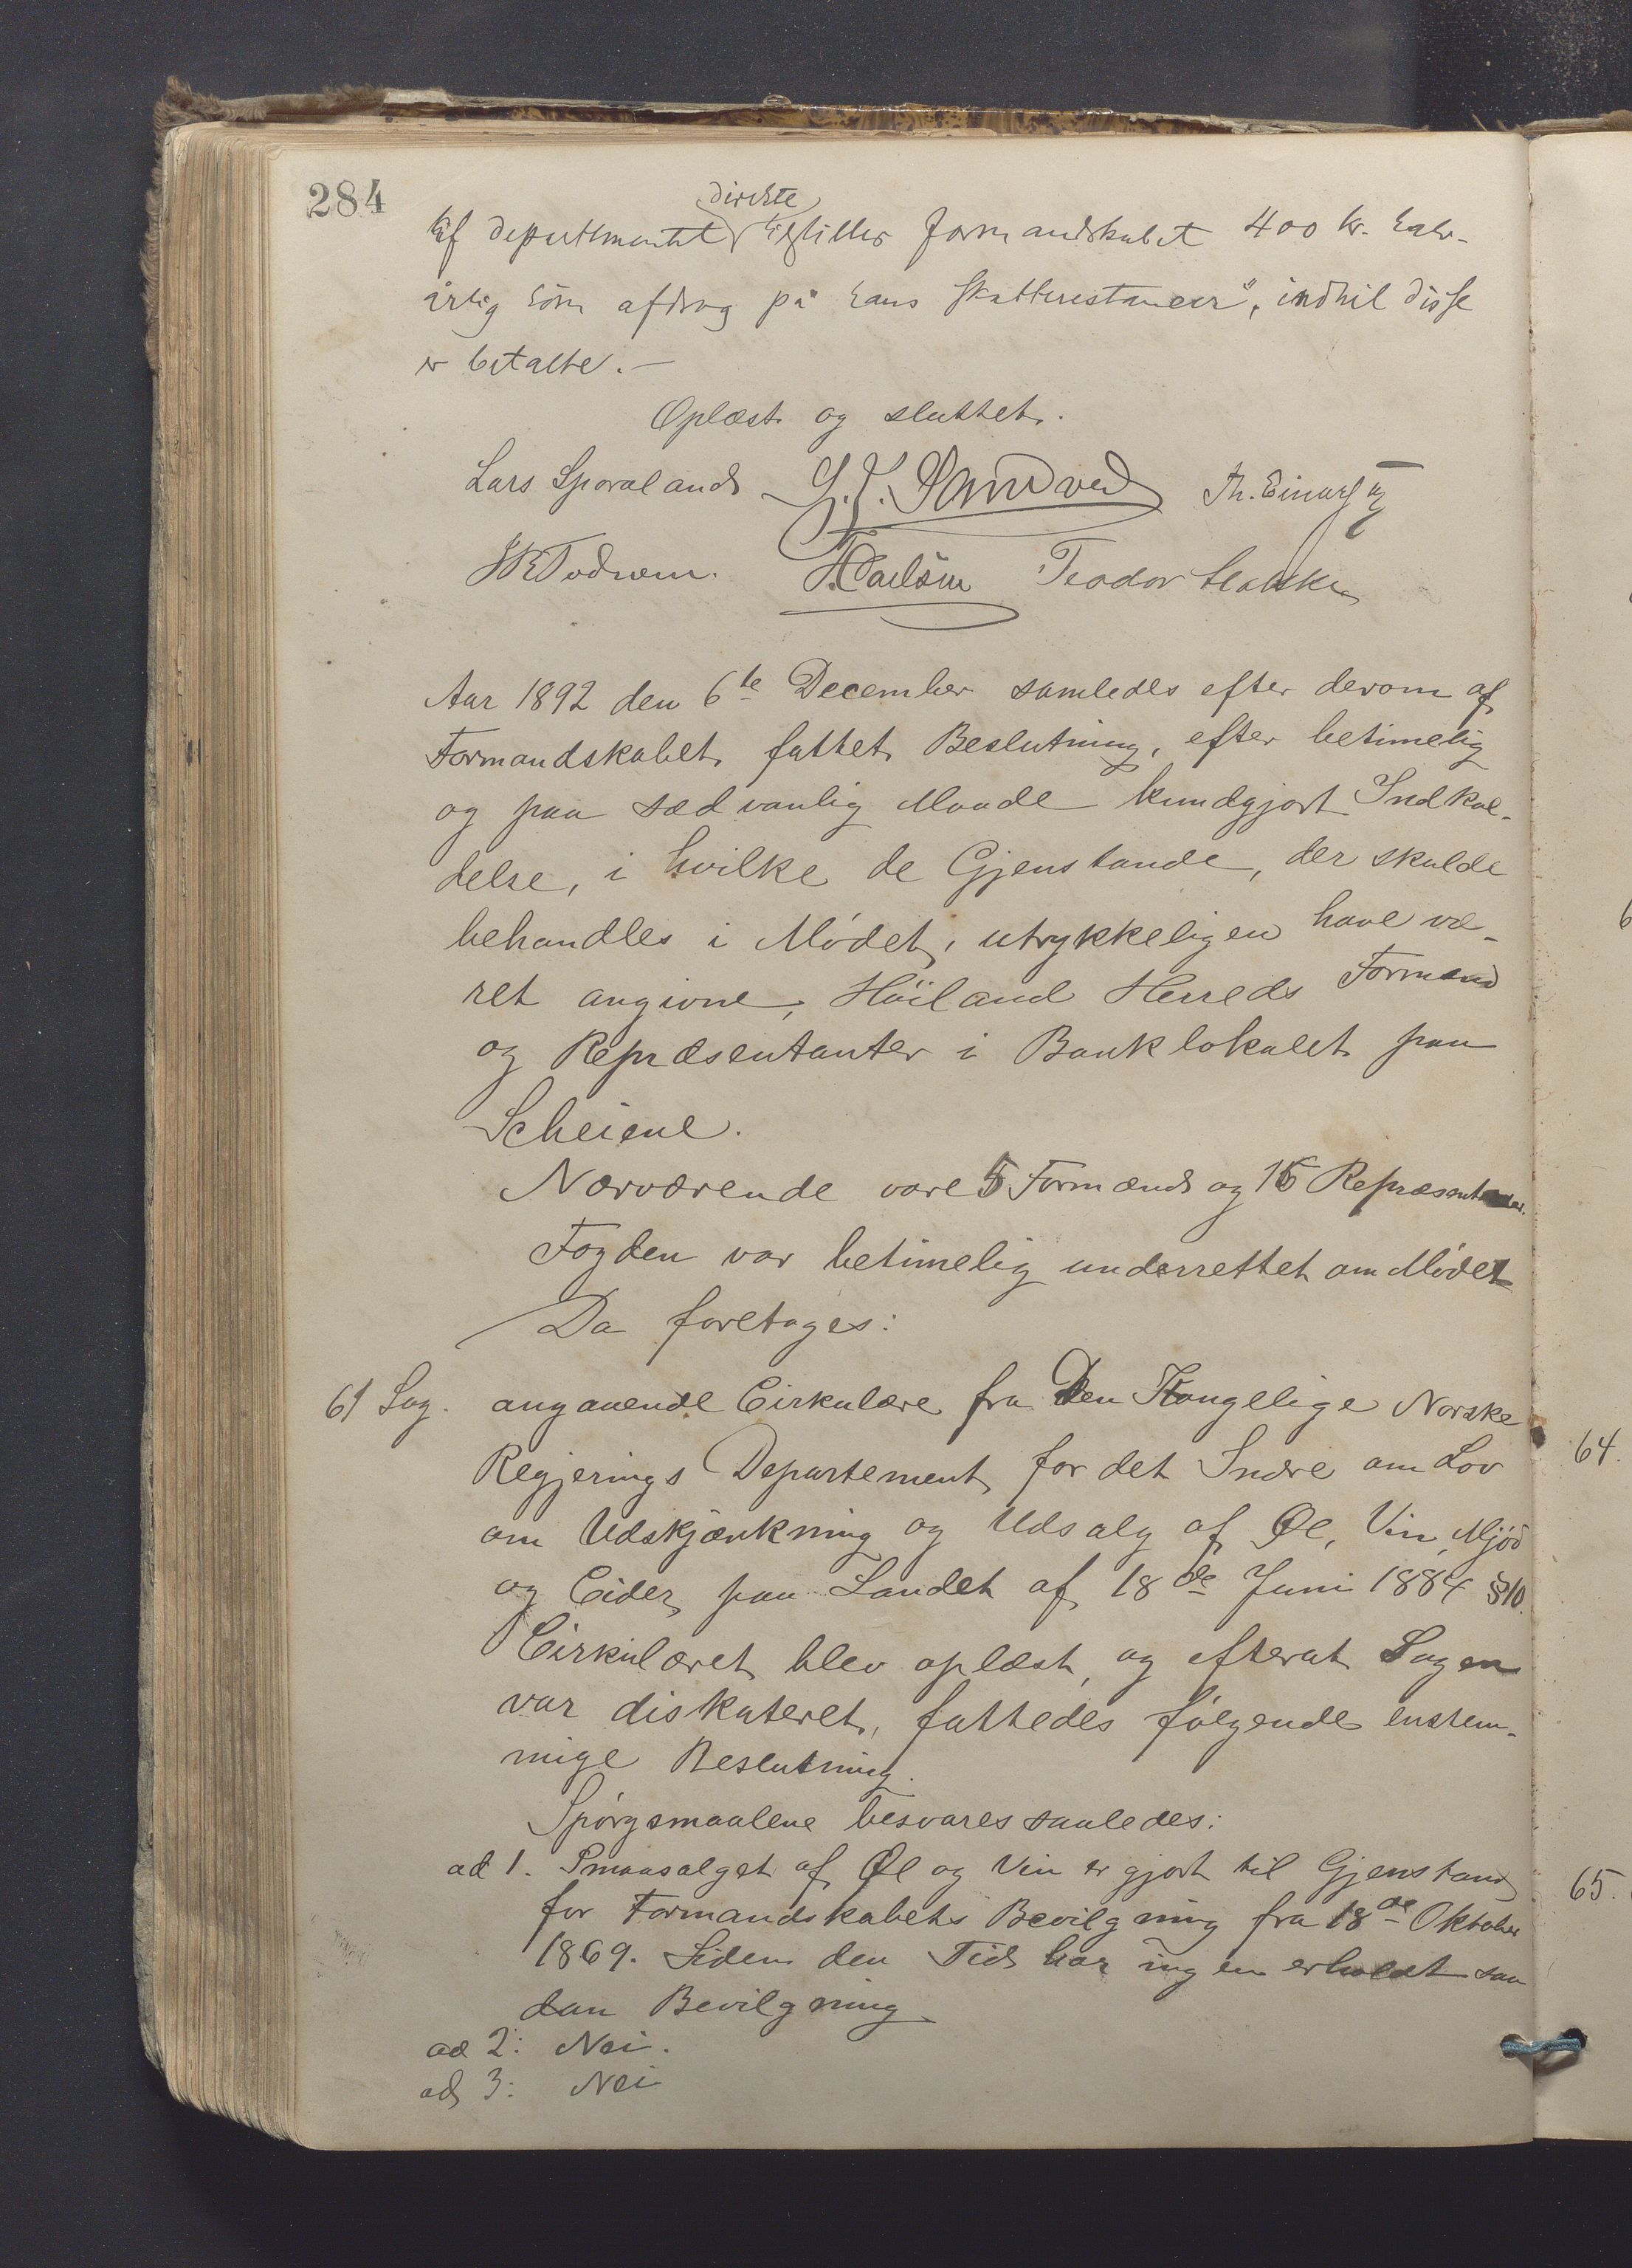 284
direkte
af departementet tilstilles formandskabet 400 kr. halv-
årlig som afdrag på hans skatterestancer", indtil disse
er betalte. —
Oplæst og sluttet.
Lars Sporaland G. J. Sandved Th.
J R Todnem. Teodor
Aar 1892 den 6te December samledes efter derom af
Formandskabet fattet Beslutning, efter betimelig
og paa sædvanlig Maade kundgjort Indkal-
delse, i hvilke de Gjenstande, der skulde
behandles i Mødet, utrykkeligen have væ-
ret angivne, Høiland Herreds Formænd
og Repræsentanter i Banklokalet paa
Scheiene.
Nærværende vare 5 Formænd og 15 Repræsentanter.
Fogden var betimelig underrettet om Mødet
Da foretoges:
61 Sag. angaaende Cirkulære fra Den Kongelige Norske
Regjerings Departement for det Indre om Lov
om Udskjænkning og Udsalg af Øl, Vin, Mjød
og Cider paa Landet af 18de Juni 1884 §10.
Cirkulæret blev oplæst, og efterat Sagen
var diskuteret, fattedes følgende enstem-
mige Beslutning.
Spørgsmaalene besvares saaledes:
ad 1. Smaasalget af Øl og Vin er gjort til Gjenstand
for Formandskabets Bevilgning fra 18de Oktober
1869. Siden den Tid har ingen erholdt saa
dan Bevilgning
ad 2: Nei.
ad 3: Nei
64.
65.